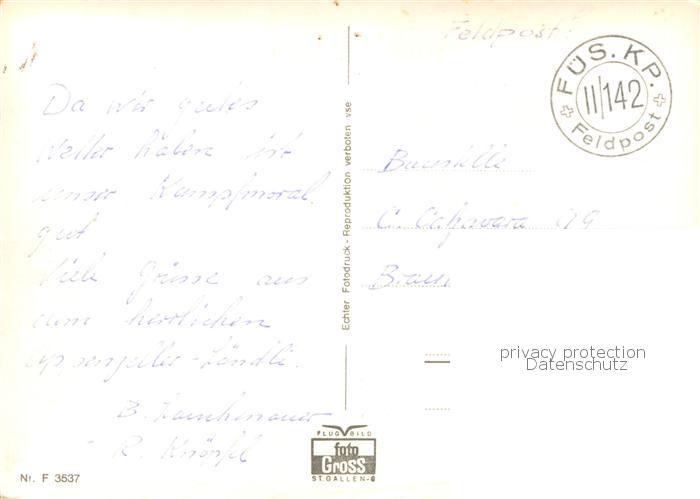 Feldpost
FÜS. KP.
II/142
Feldpost
Da wir gutes
Wetter haben ist
unser Kampfmoral
gut
Viele Grüsse aus
dem herrlichen
Appenzeller-Ländli.
B.
R. Knöpfel
Echter Fotodruck - Reproduktion verboten vse
C. 
privacy protection
Datenschutz
FLUGBILD
foto
Gross
ST. GALLEN-6
Nr. F 3537